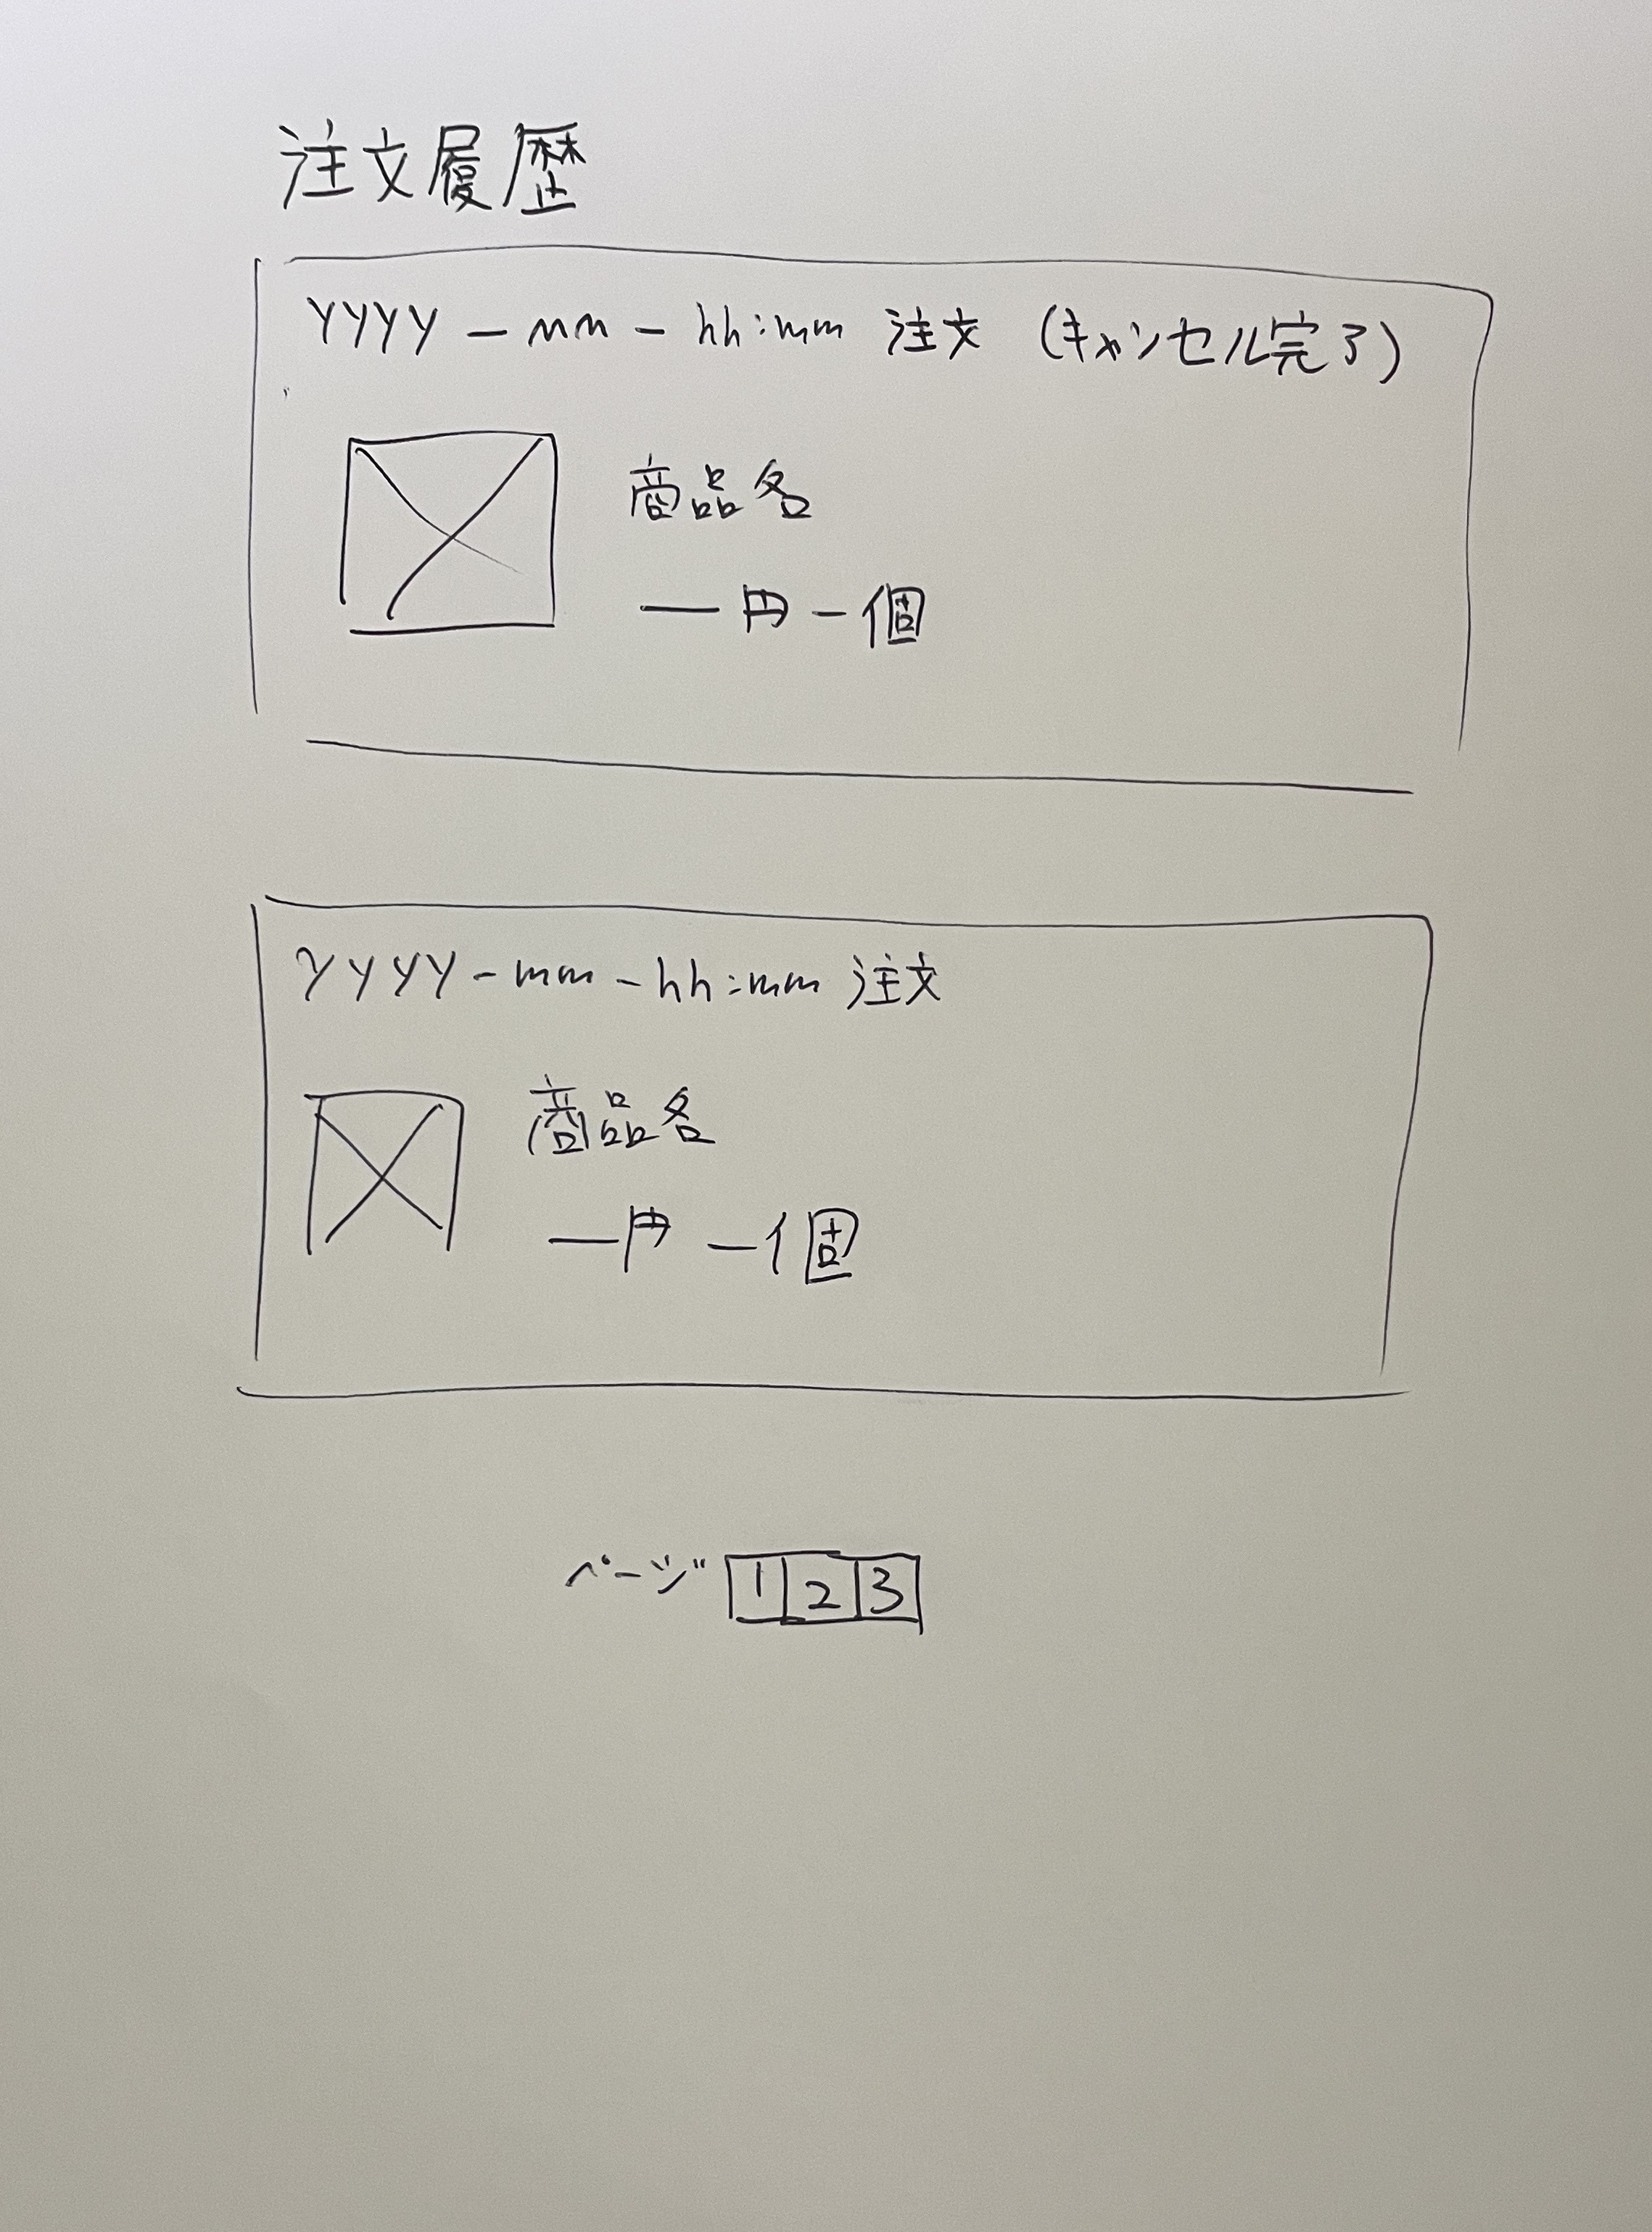 注文履歴
YYYY - mm - hh:mm 注文 (キャンセル完了)
商品名
― 円 - 個
YYYY - mm - hh:mm 注文
商品名
― 円 - 個
ページ 1 2 3